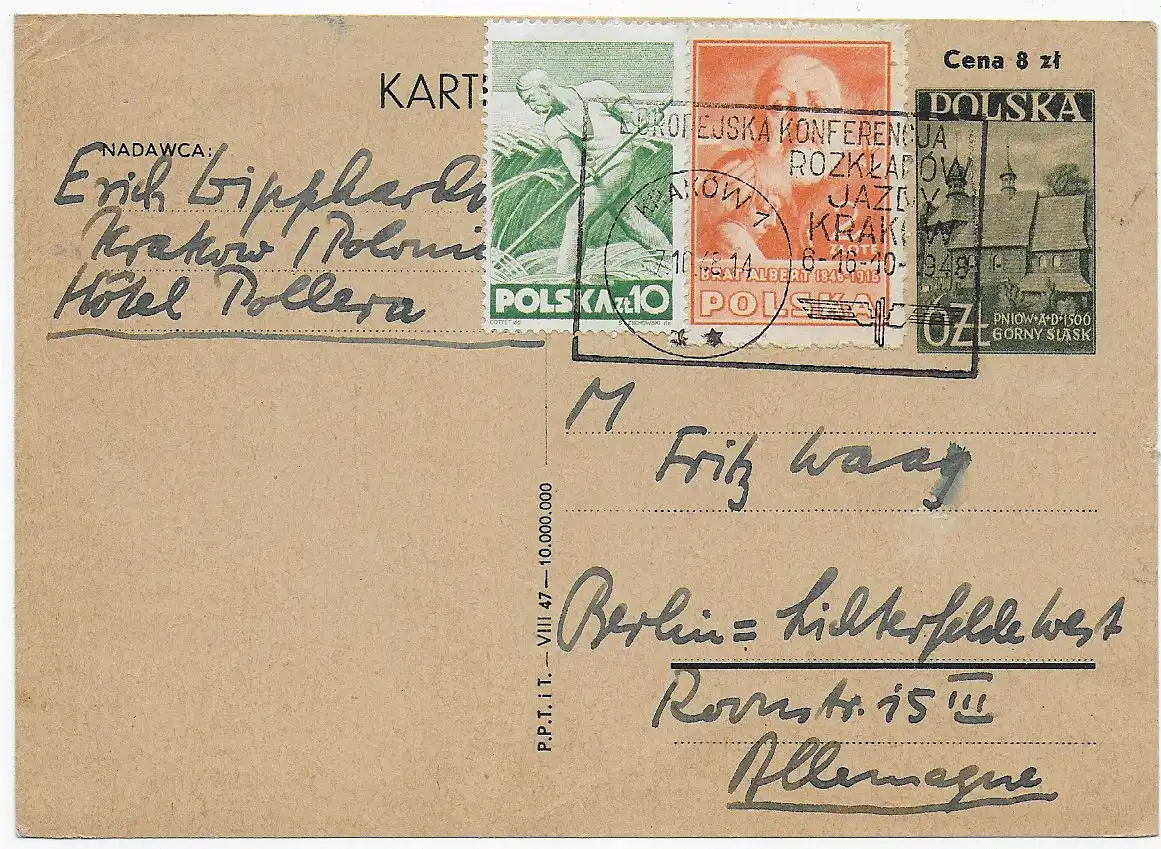 Cena 8 zł
KART
NADAWCA:
Erich Lipphardt
Krakow / Polonia
Hôtel Pollera
POLSKA ZŁ 10
BRAT ALBERT 1846-1916
POLSKA
POLSKA
6 ZŁ
PNIÓW•A•D•1500
GÓRNY ŚLĄSK
EUROPEJSKA KONFERENCJA
ROZKŁADÓW
JAZDY
KRAKÓW
6-16-10-1948
KRAKÓW 1
7.10.48.14
M
Fritz Waag
Berlin = Lichterfelde West
Roonstr. 15 III
Allemagne
P.P.T. i T. — VIII 47 — 10.000.000